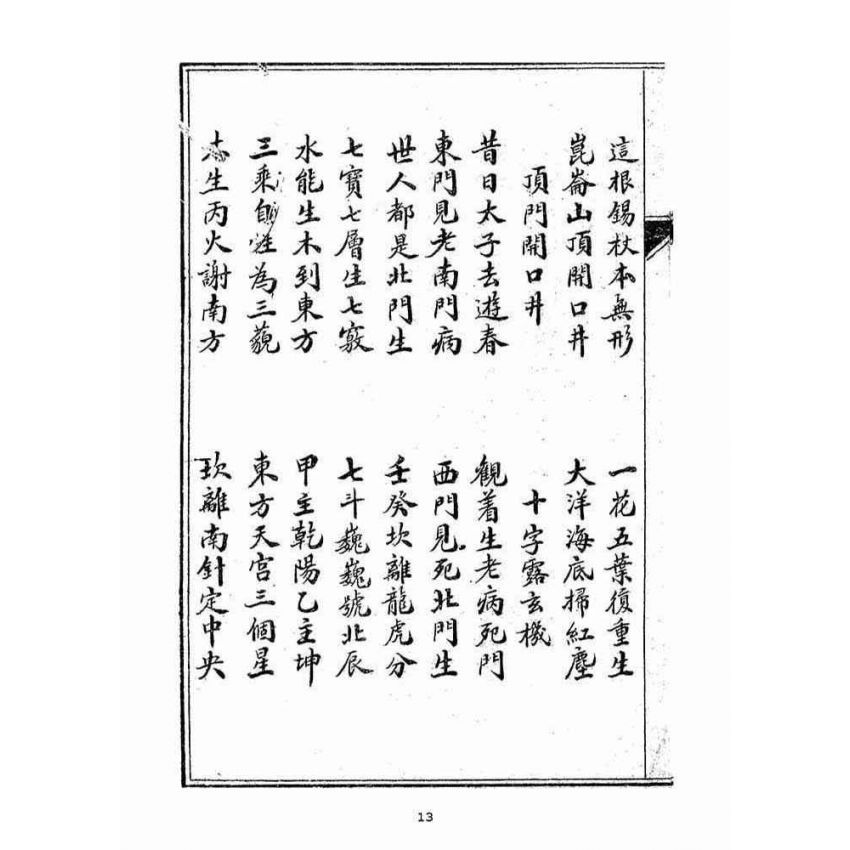 這根錫杖本無形 一花五葉復重生
崑崙山頂開口井 大洋海底掃紅塵
頂門開口井 十字露玄機
昔日太子去遊春 觀着生老病死門
東門見老南門病 西門見死北門生
世人都是北門生 壬癸坎離龍虎分
七寶七層生七竅 七斗巍巍號北辰
水能生木到東方 甲主乾陽乙主坤
三乘自性為三藐 東方天宮三個星
生丙火謝南方 坎離南針定中央
13